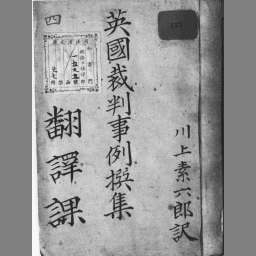 英國裁判事例撰集
川上素六郎訳
四
翻譯課